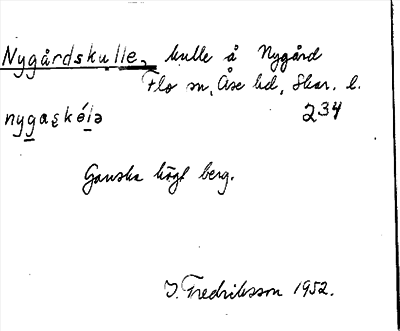 Nygårdskulle, kulle å Nygård
Flo sn, Åse hd, Skar. l.
nygaskélə 234
Ganska högt berg.
I. Fredriksson 1952.